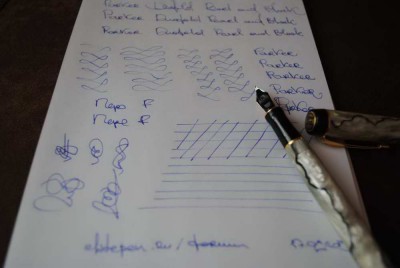 Parker Duofold Pearl and Black
Parker Duofold Pearl and Black
Parker Duofold Pearl and Black
Parker
Parker
Parker
Parker
Parker
Перо F
Перо F